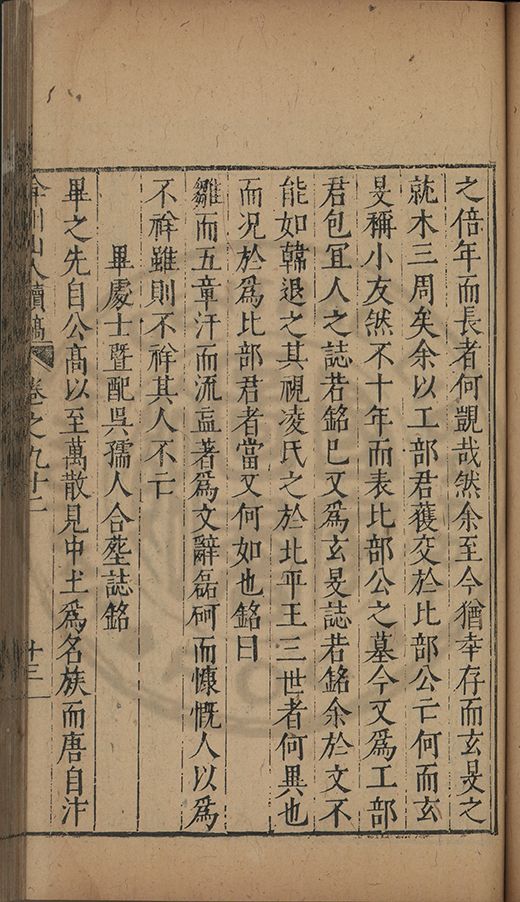 之倍年而長者何覬哉然余至今猶幸存而玄旻之
就木三周矣余以工部君獲交於比部公亡何而玄
旻稱小友然不十年而表比部公之墓今又爲工部
君包冝人之誌若銘巳又爲玄旻誌若銘余於文不
能如韓退之其視凌氏之於北平王三世者何異也
而况於爲比部君者當又何如也銘曰
雛而五章汗而流血著爲文辭磊砢而慷慨人以爲
不祥雖則不祥其人不亡
畢處士暨配吳孺人合塟誌銘
畢之先自公高以至萬散見中土爲名族而唐自汴
弇州山人續稿 卷之九十二 十三